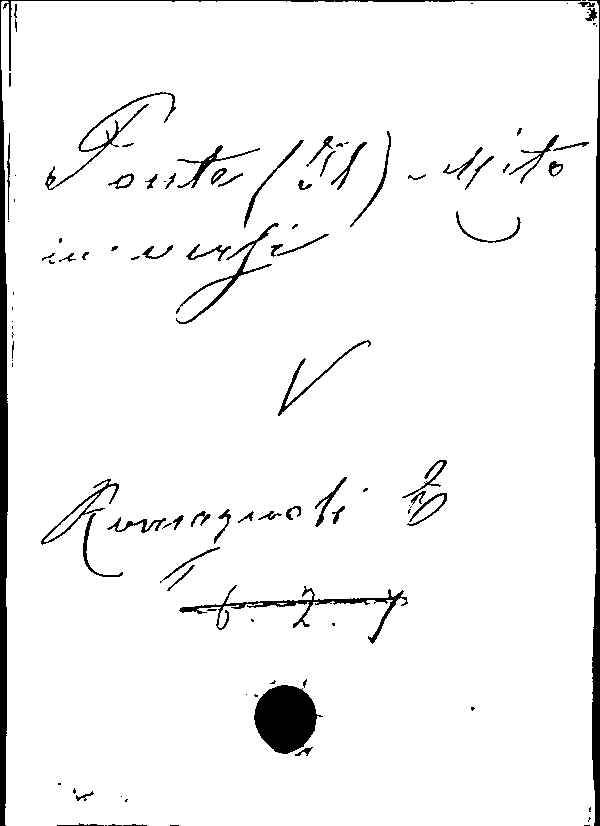 Ponte (Il) - Mito
in versi
V
Romagnoli E
6. 2. 7